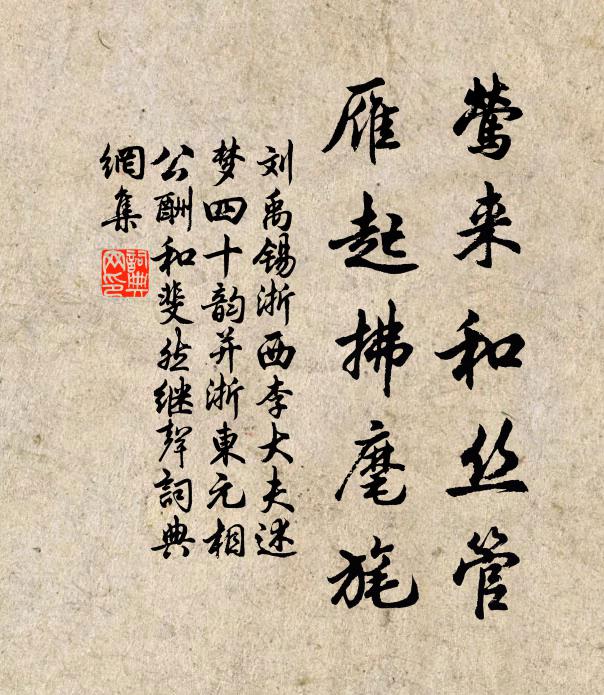 莺来和丝管
雁起拂麾旄
刘禹锡浙西李大夫述
梦四十韵并浙东元相
公酬和斐然继声词典
網集
詞典
网印